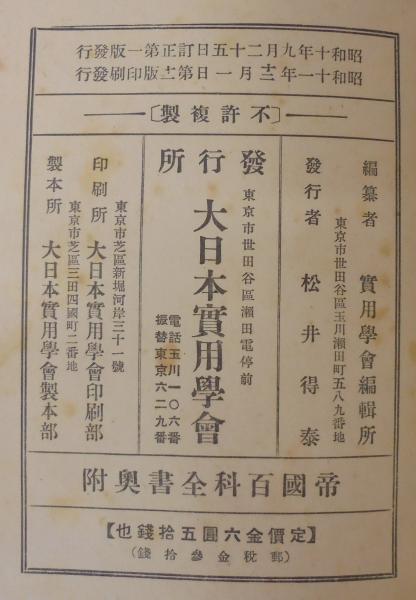 昭和十年九月二十五日訂正第一版發行
昭和十一年十二月一日第十二版印刷發行
不許複製
編纂者 實用學會編輯所
東京市世田谷區玉川瀨田町五八九番地
發行者 松井得泰
發行所
東京市世田谷區瀨田電停前
大日本實用學會
電話玉川一〇六番
振替東京六二九番
東京市芝區新堀河岸三十一號
印刷所 大日本實用學會印刷部
東京市芝區三田四國町二番地
製本所 大日本實用學會製本部
帝國百科全書奧附
【定價金六圓五拾錢也】
(郵稅金參拾錢)